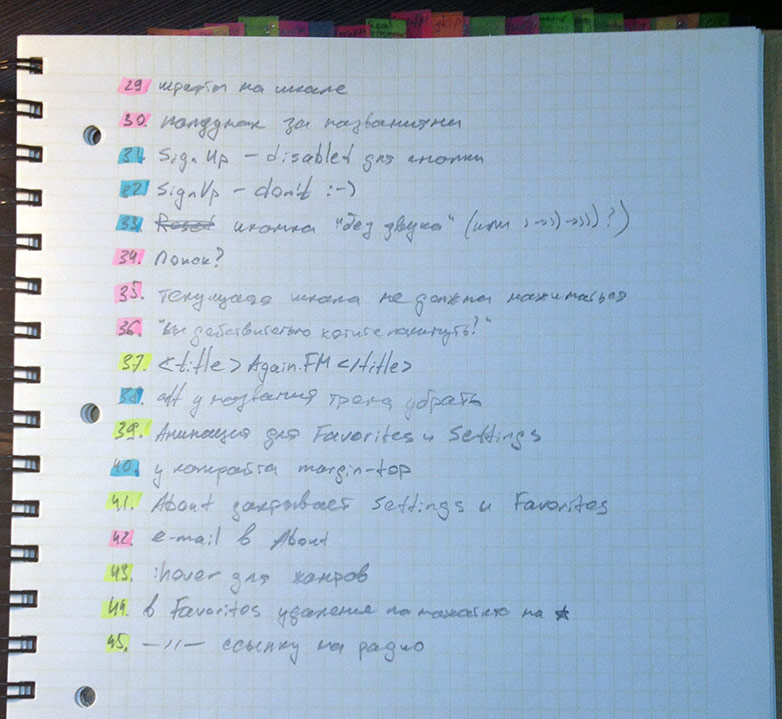 29 шрифты на шкале
30. попапчик за названиями
31. Sign Up – disabled для кнопки
32 SignUp – don't :-)
33. Reset иконка "без звука" (или )→))→)))?)
34. Поиск?
35. текущая шкала не должна нажиматься
36. "вы действительно хотите покинуть?"
37. <title>Again.FM</title>
38. alt у названия трека убрать
39. Анимация для Favorites и Settings
40. у копирайта margin-top
41. About закрывает Settings и Favorites
42. e-mail в About
43. :hover для жанров
44. в Favorites удаление по нажатию на ★
45. —〃— ссылку на радио